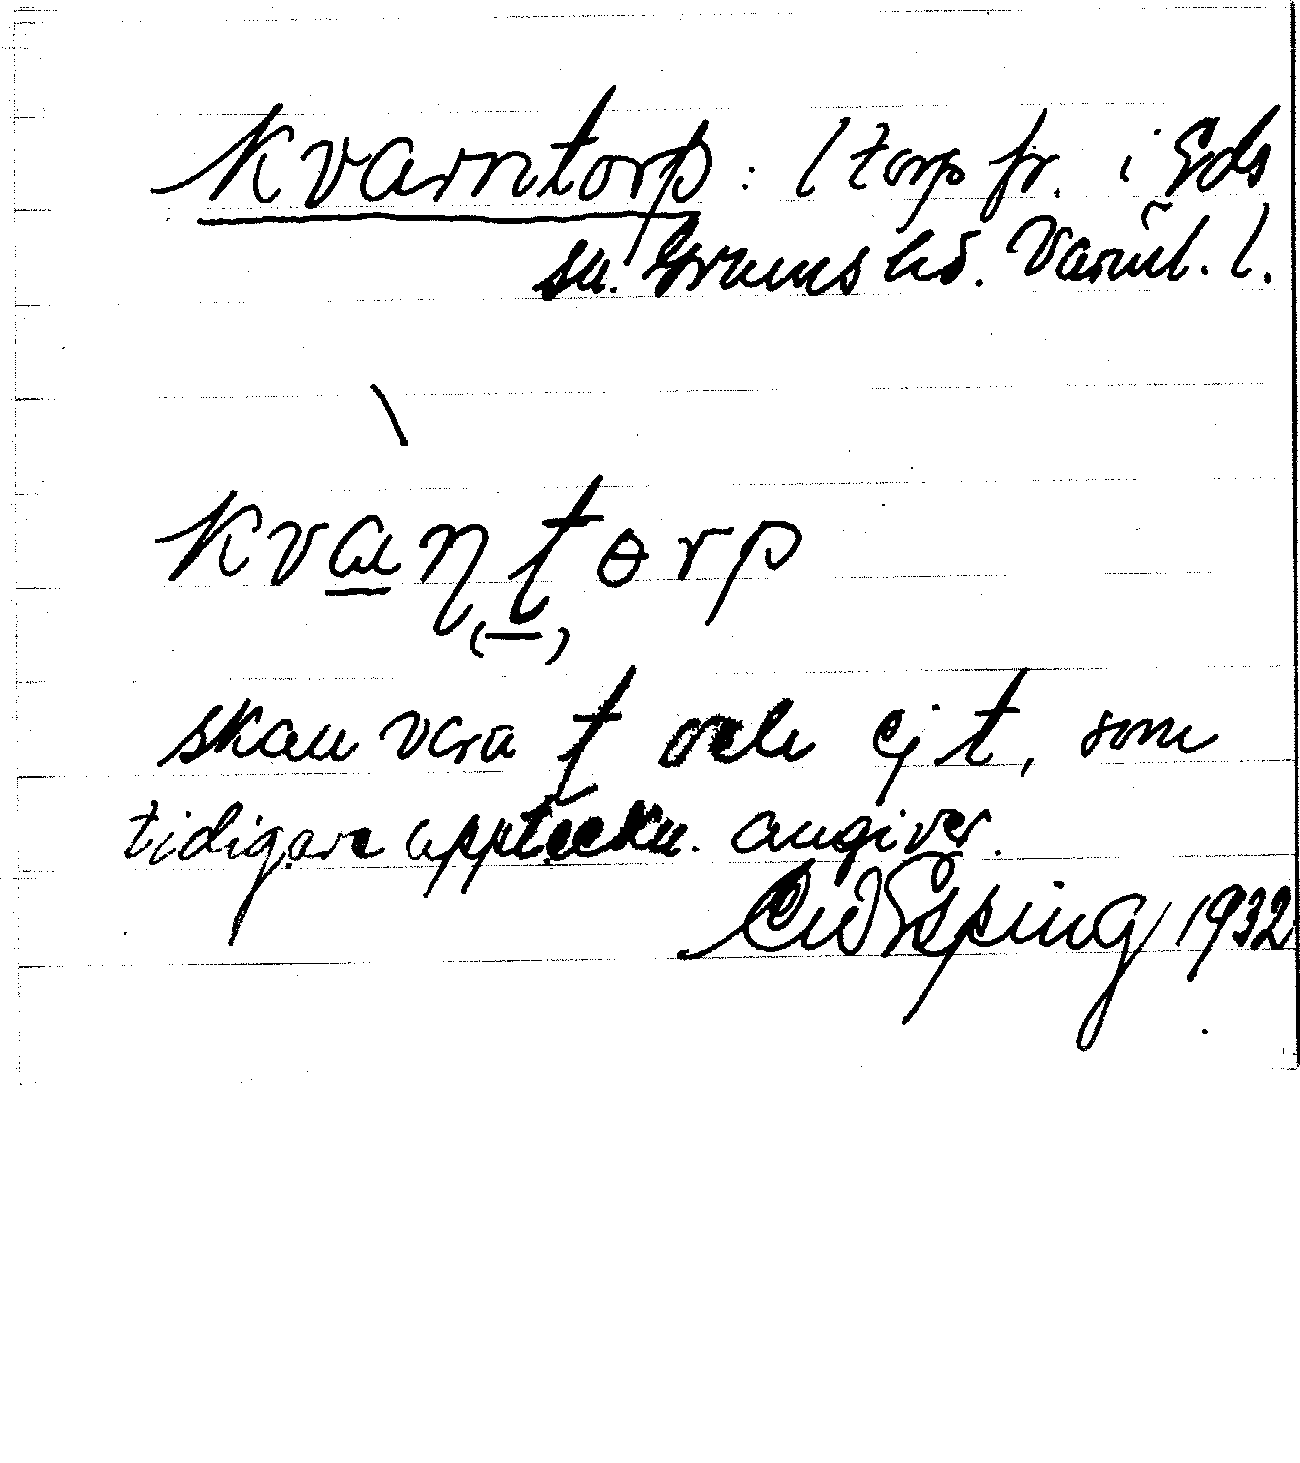 Kvarntorp : 1 torp fr. i Eds
sn. Grums hd. Värml. l.
\
kvaṇṭɵrp
(—)
skall vara ʈ och ej t, som
tidigare uppteckn. angiver.
Espling 1932